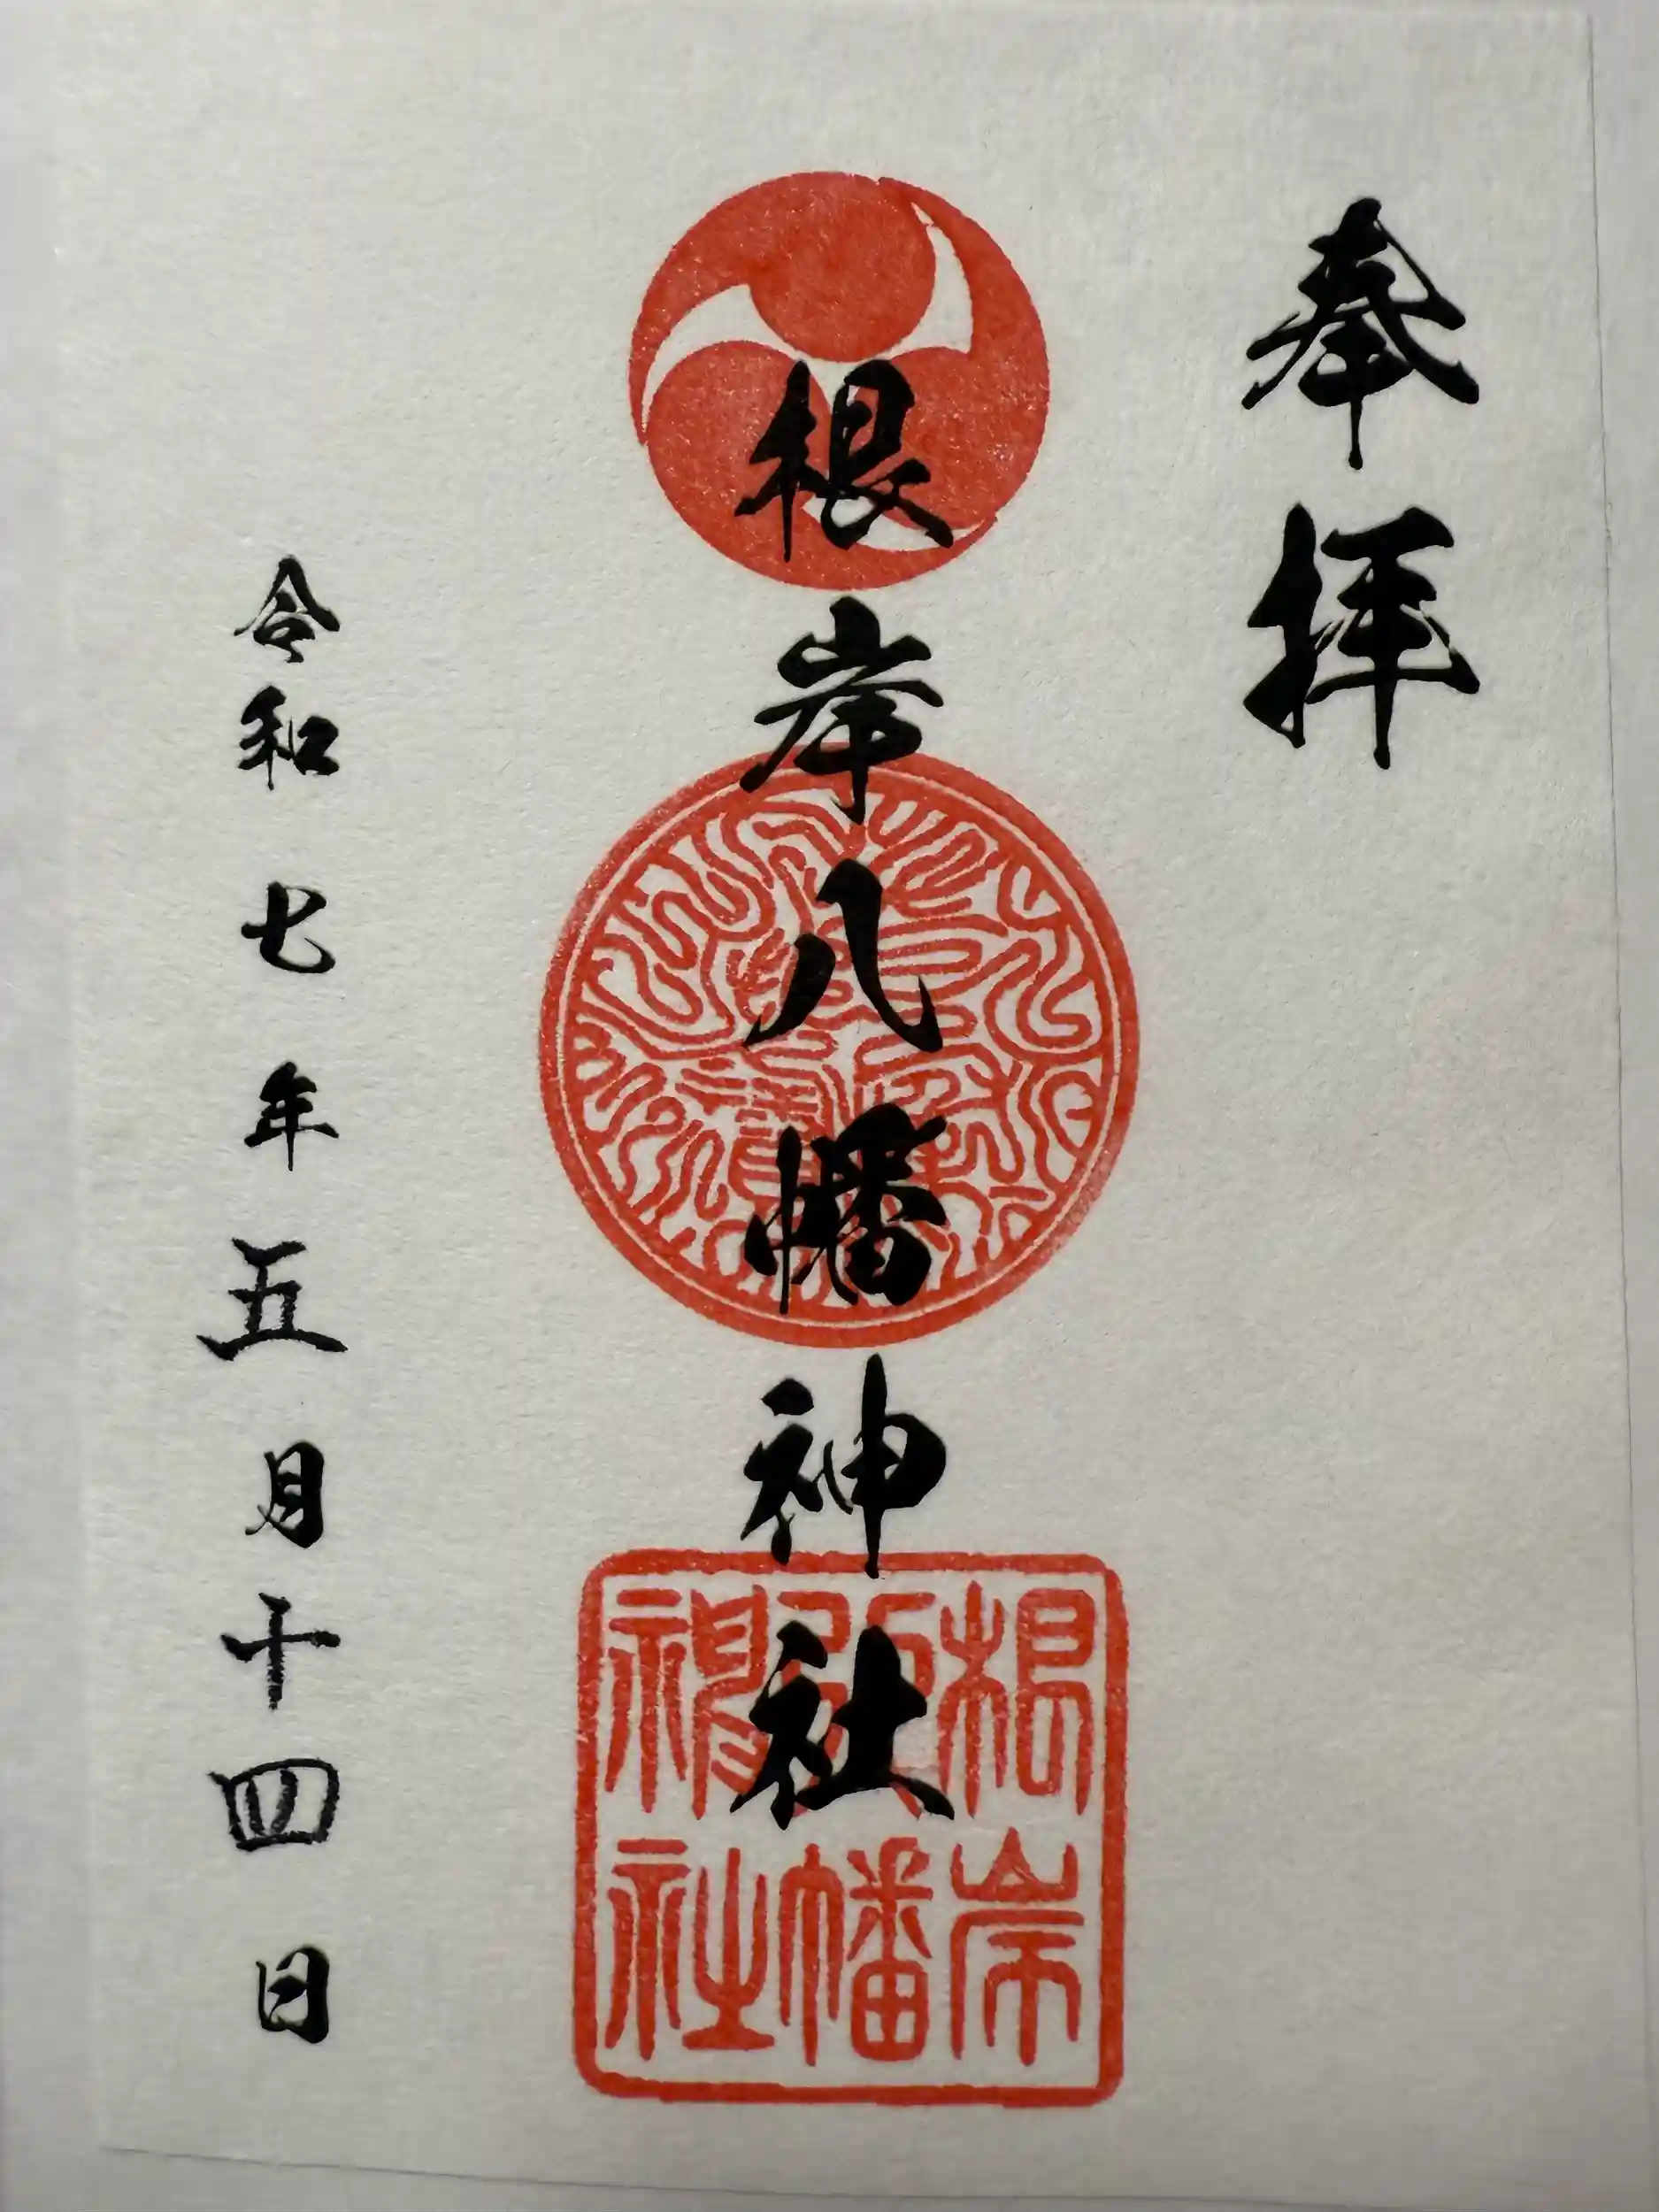 奉拝
根岸八幡神社
根岸
八幡
神社
令和七年五月十四日